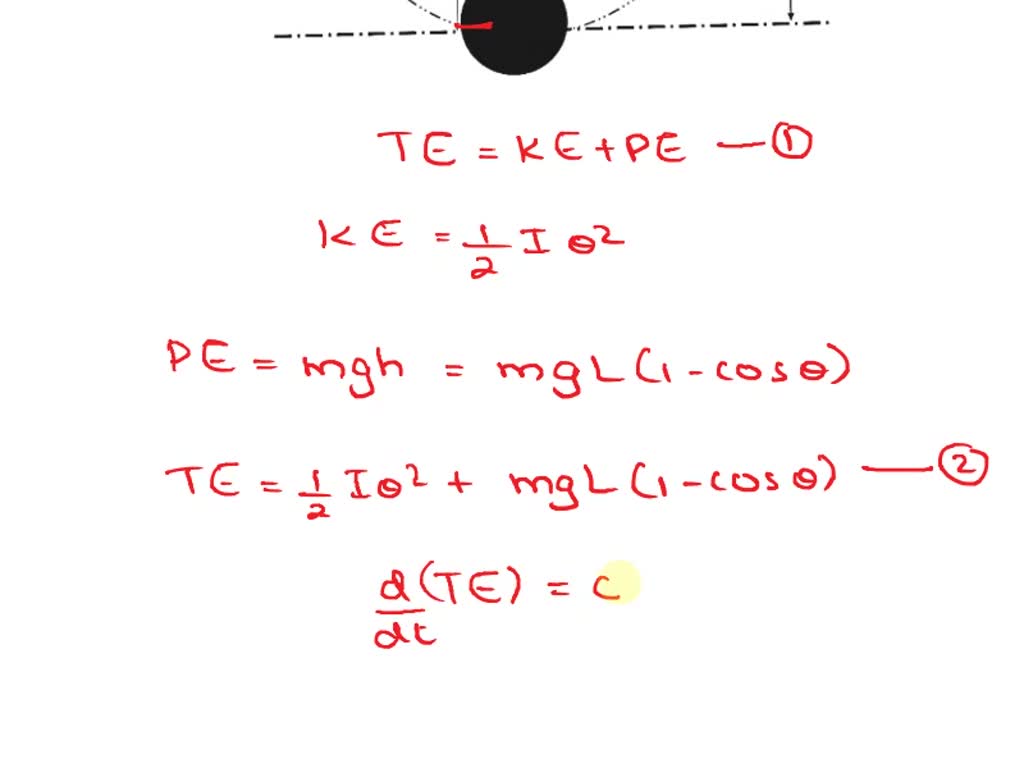 TE = KE + PE — ①
KE = 1/2 I θ²
PE = mgh = mgL (1 - cos θ)
TE = 1/2 I θ² + mgL (1 - cos θ) — ②
d/dt (TE) = c